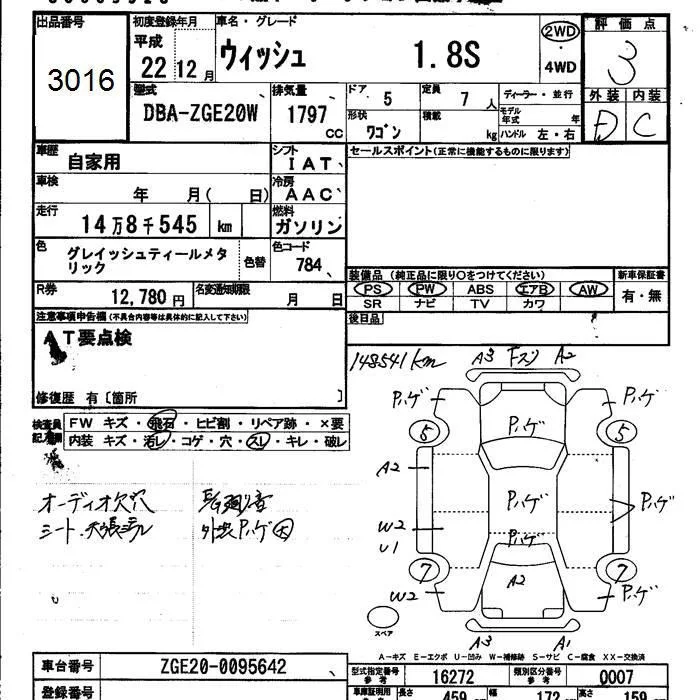 出品番号
3016
初度登録年月
平成
22 12 月
車名・グレード
ウィッシュ 1.8S
2WD
・
4WD
評価点
3
外装 内装
D C
型式
DBA-ZGE20W
排気量
1797
CC
ドア 5
定員 7 人
形状
ワゴン
積載 kg
ディーラー・並行
モデル年式 年
ハンドル 左・右
車歴
自家用
シフト
IAT
セールスポイント(正常に機能するものに限ります)
車検
年 月( 日)
冷房
AAC
走行
14万8千545 km
燃料
ガソリン
色
グレイッシュティールメタ
リック
色替
色コード
784
装備品 (純正品に限り○をつけてください)
新車保証書
PS PW ABS エアB AW
SR ナビ TV カワ
有・無
R券
12,780 円
名変通知期限
月 日
後日品
注意事項申告欄(不具合内容等は具体的に記入して下さい)
AT要点検
修復歴 有〔箇所 〕
148541km
検査員
記入欄
FW キズ・飛石・ヒビ割・リペア跡・×要
内装 キズ・汚レ・コゲ・穴・スレ・キレ・破レ
オーディオ欠穴
シート
外装Pハゲ大
A3 Fスリ A2
Pハゲ Pハゲ
5 Pハゲ 5
A2
Pハゲ Pハゲ
W2
U1
Pハゲ
7 A2 7
W2 Pハゲ
スペア
A3 A1
A-キズ E-エクボ U-凹み W-補修跡 S-サビ C-腐食 XX-交換済
車台番号
ZGE20-0095642
型式指定番号
参考
16272
類別区分番号
参考
0007
登録番号
車庫証明用
長さ
459
幅
172
高さ
159